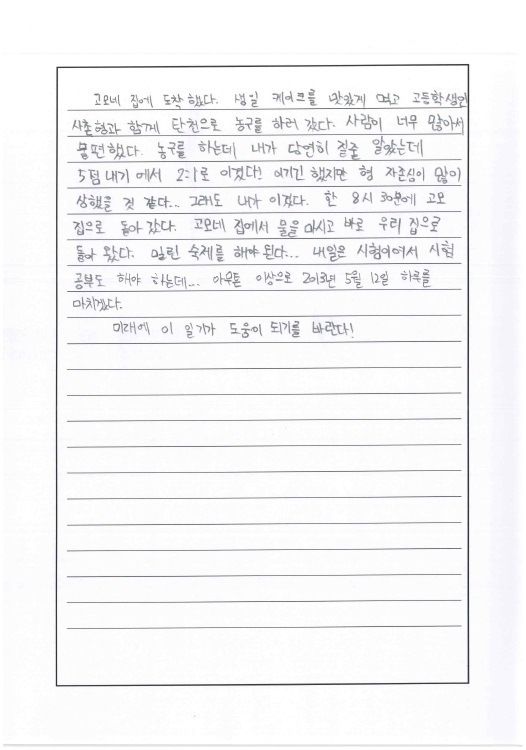 고모네 집에 도착했다. 생일 케이크를 맛있게 먹고 고등학생인
사촌형과 함께 탄천으로 농구를 하러 갔다. 사람이 너무 많아서
불편했다. 농구를 하는데 내가 당연히 질줄 알았는데
5점내기에서 2:1로 이겼다! 이기긴 했지만 형 자존심이 많이
상했을 것 같다... 그래도 내가 이겼다. 한 8시 30분에 고모
집으로 돌아 갔다. 고모네 집에서 물을 마시고 바로 우리 집으로
돌아 왔다. 밀린 숙제를 해야 된다... 내일은 시험이어서 시험
공부도 해야 하는데... 아무튼 이상으로 2013년 5월 12일 하루를
마치겠다.
미래에 이 일기가 도움이 되기를 바란다!